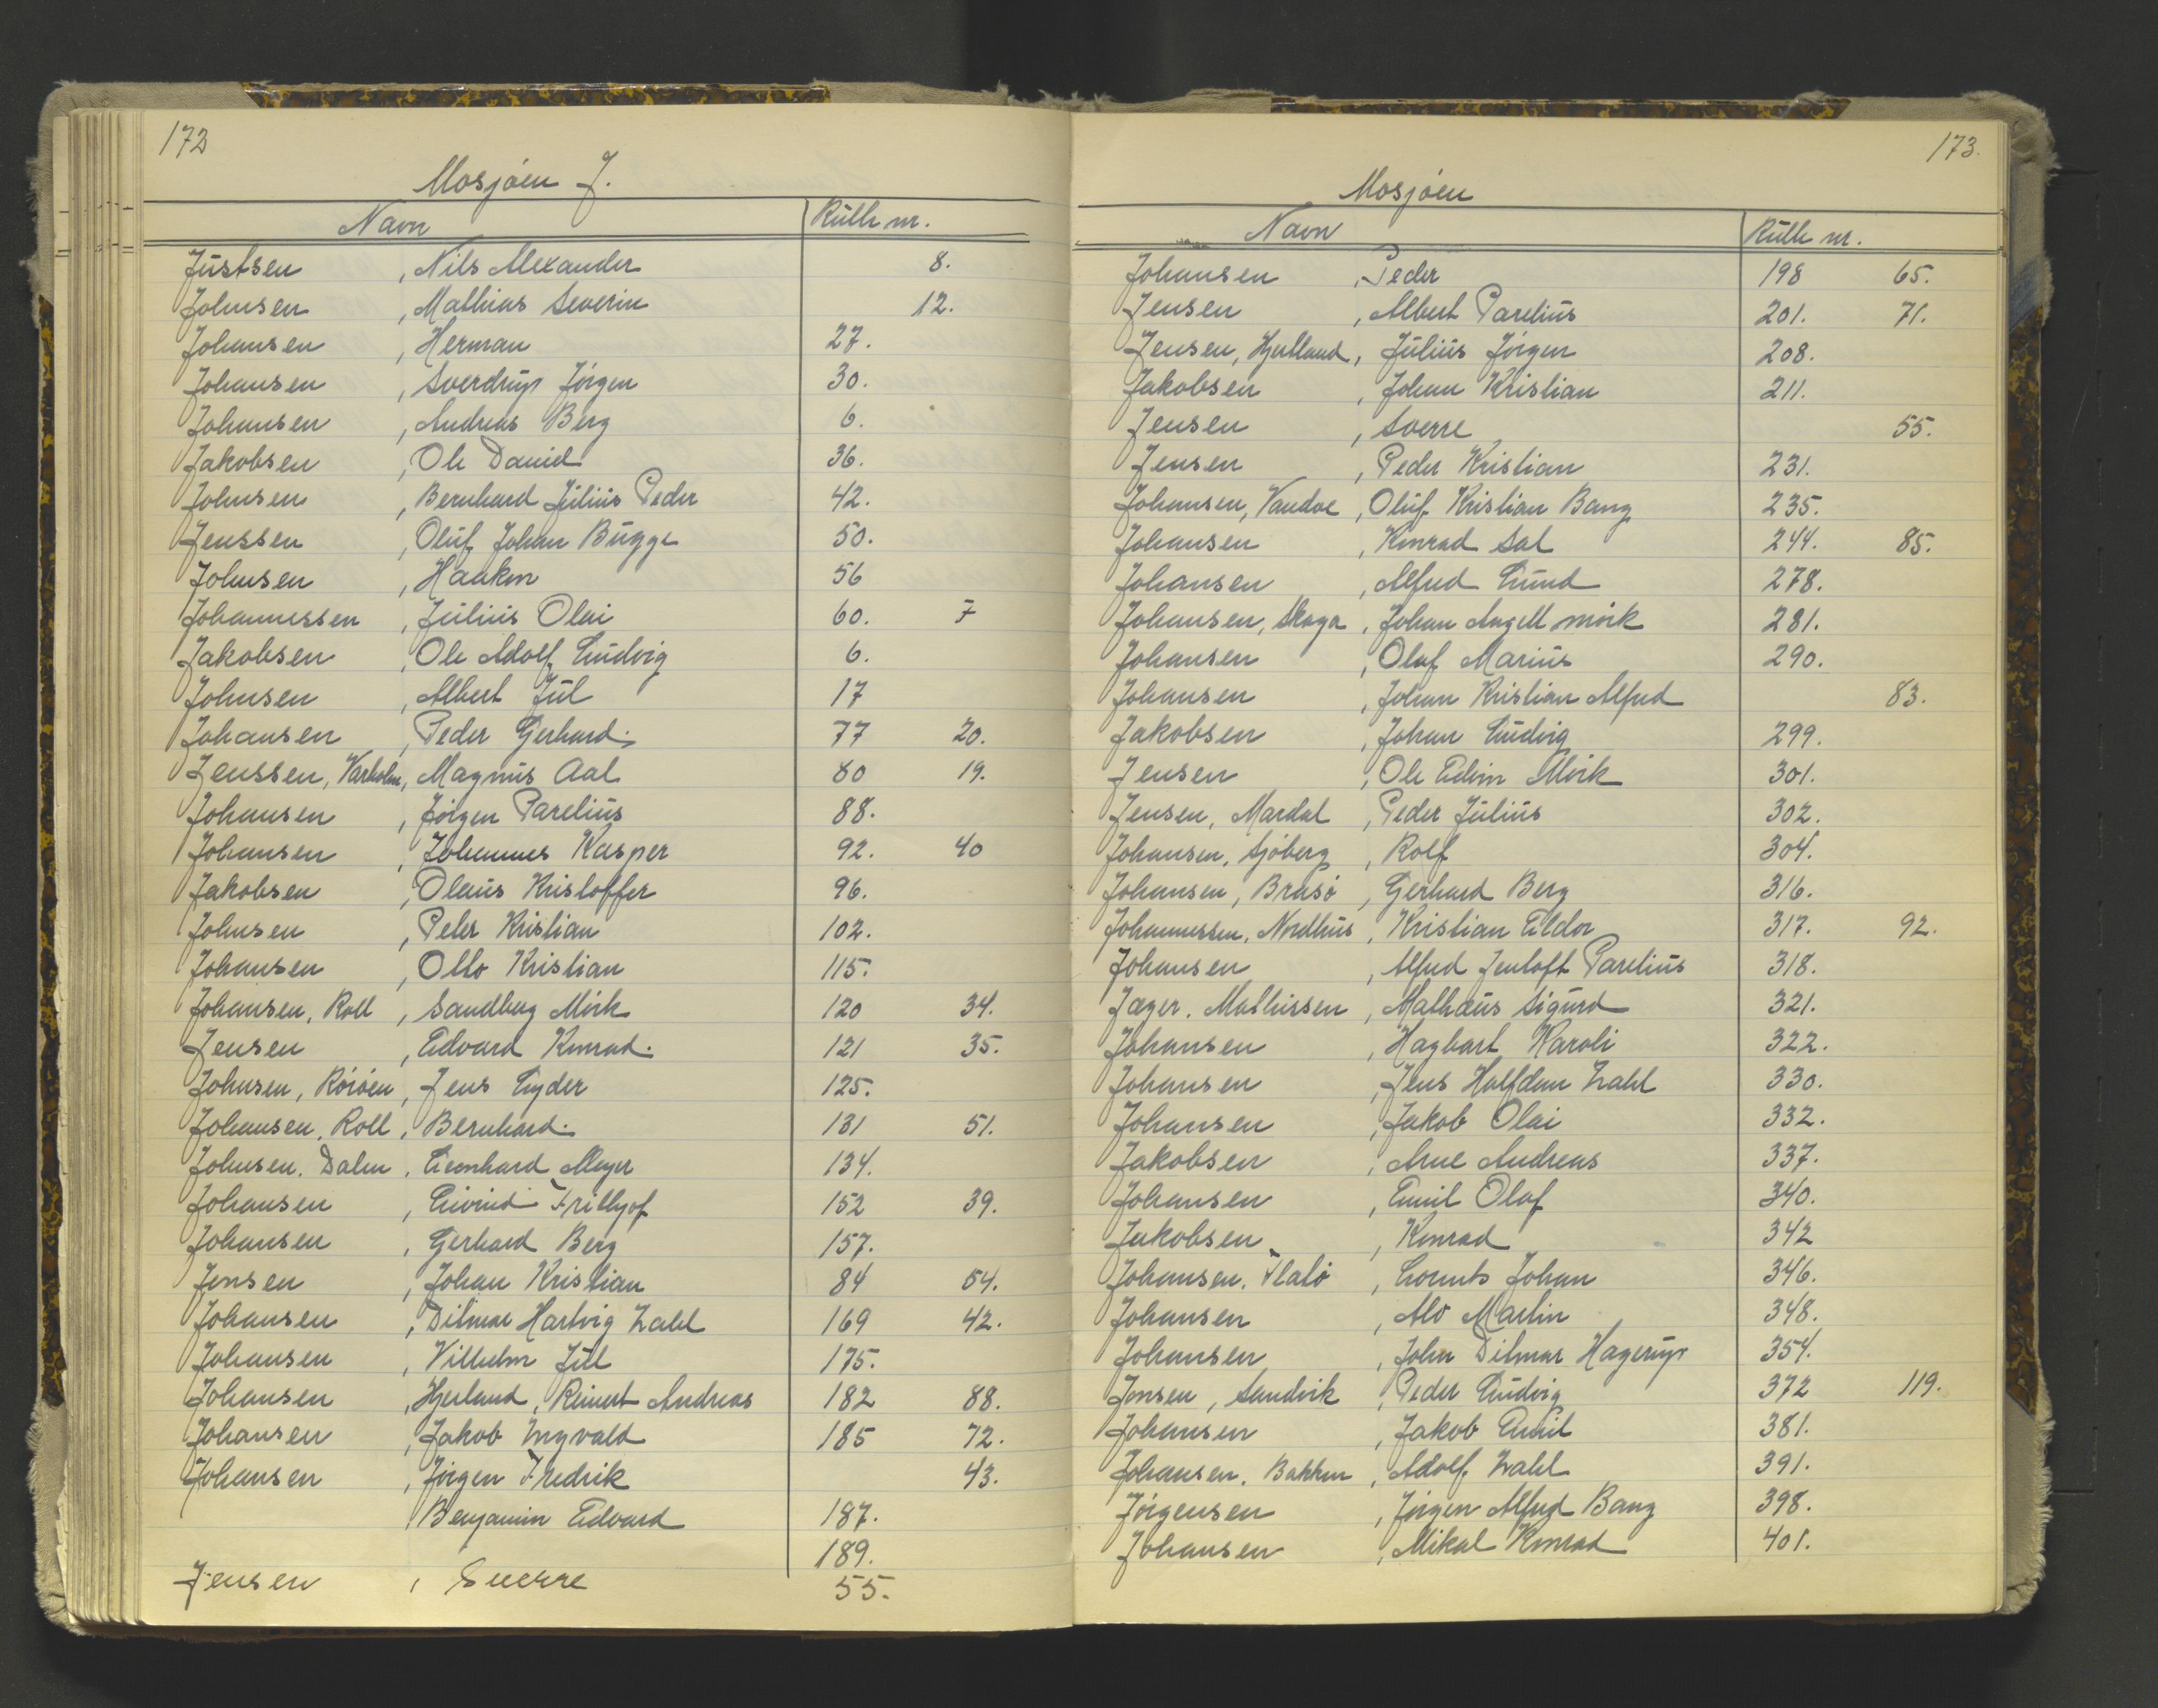 172
Mosjøen J.
Navn Rulle nr.
Justsen , Nils Alexander 8.
Johnsen , Mathias Severin 12.
Johansen , Herman 27.
Johansen , Sverdrup Jørgen 30.
Johansen , Andreas Berg 6.
Jakobsen , Ole Daniel 36.
Johnsen , Bernhard Julius Peder 42.
Jenssen , Oluf Johan Bugge 50.
Johnsen , Haakon 56
Johannessen , Julius Olai 60. 7
Jakobsen , Ole Adolf Ludvig 6.
Johnsen , Albert Jul 17
Johansen , Peder Gerhard. 77 20.
Jenssen, Varholm, Magnus Aal 80 19.
Johansen , Jørgen Parelius 88.
Johansen , Johannes Kasper 92. 40
Jakobsen , Olaus Kristoffer 96.
Johnsen , Peter Kristian 102.
Johansen , Otto Kristian 115.
Johansen, Roll , Sandberg Mörk 120 34.
Jensen , Edvard Konrad. 121 35.
Johnsen, Rösöen , Jens Lyder 125.
Johansen, Roll , Bernhard. 131 51.
Johnsen, Dalen , Leonhard Meyer 134.
Johansen , Eivind Frithjof 152 39.
Johansen , Gerhard Berg 157.
Jensen , Johan Kristian 84 54.
Johansen , Ditmar Hartvig Zahl 169 42.
Johansen , Vilhelm Jul 175.
Johansen , Hjerland, Reinert Andreas 182 88.
Johansen , Jakob Ingvald 185 72.
Johansen , Jørgen Fredrik 43.
, Benjamin Edvard 187.
189.
Jensen , Sverre 55.
173.
Mosjøen
Navn Rulle nr.
Johansen , Peder 198 65.
Jensen , Albert Parelius 201. 71.
Jensen, Hjertland, Julius Jørgen 208.
Jakobsen , Johan Kristian 211.
Jensen , Sverre 55.
Jensen , Peder Kristian 231.
Johansen, Vandve , Oluf Kristian Bang 235.
Johansen , Konrad Sal 244. 85.
Johansen , Alfred Lund 278.
Johansen, Skaga , Johan Angell Mörk 281.
Johansen , Olaf Marius 290.
Johansen , Johan Kristian Alfred 83.
Jakobsen , Johan Ludvig 299.
Jensen , Ole Edvin Mörk 301.
Jensen, Mardal , Peder Julius 302.
Johansen, Sjøberg , Rolf 304.
Johansen, Brasø , Gerhard Berg 316.
Johannessen, Nordhus , Kristian Eldor 317. 92.
Johansen , Alfred Jentoft Parelius 318.
Jæger. Mathissen , Mathæus Sigurd 321.
Johansen , Hagbart Karoli 322.
Johansen , Jens Halfdan Zahl 330.
Johansen , Jakob Olai 332.
Jakobsen , Arne Andreas 337.
Johansen , Emil Olaf 340.
Jakobsen , Konrad 342
Johansen, Flatø , Lorents Johan 346.
Johansen , Alv Martin 348.
Johansen , John Ditmar Hagerup 354.
Jensen, Sandvik , Peder Ludvig 372 119.
Johansen , Jakob Emil 381.
Johansen, Bakken , Adolf Zahl 391.
Jørgensen , Jørgen Alfred Bang 398.
Johansen , Mikal Konrad 401.